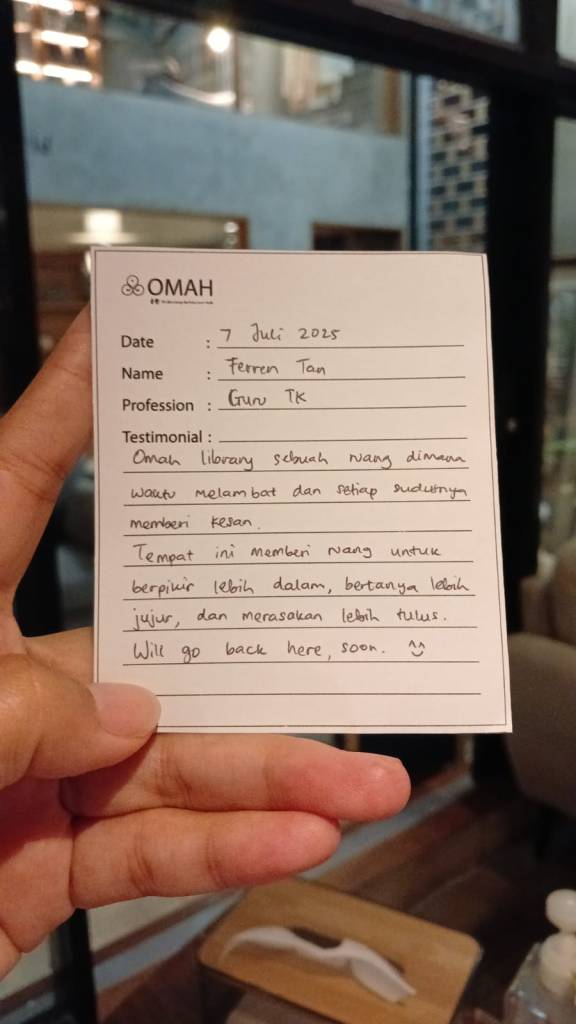 OMAH
Date : 7 Juli 2025
Name : Ferren Tan
Profession : Guru TK
Testimonial :
Omah library sebuah ruang dimana
waktu melambat dan setiap sudutnya
memberi kesan.
Tempat ini memberi ruang untuk
berpikir lebih dalam, bertanya lebih
jujur, dan merasakan lebih tulus.
Will go back here, soon. ^^